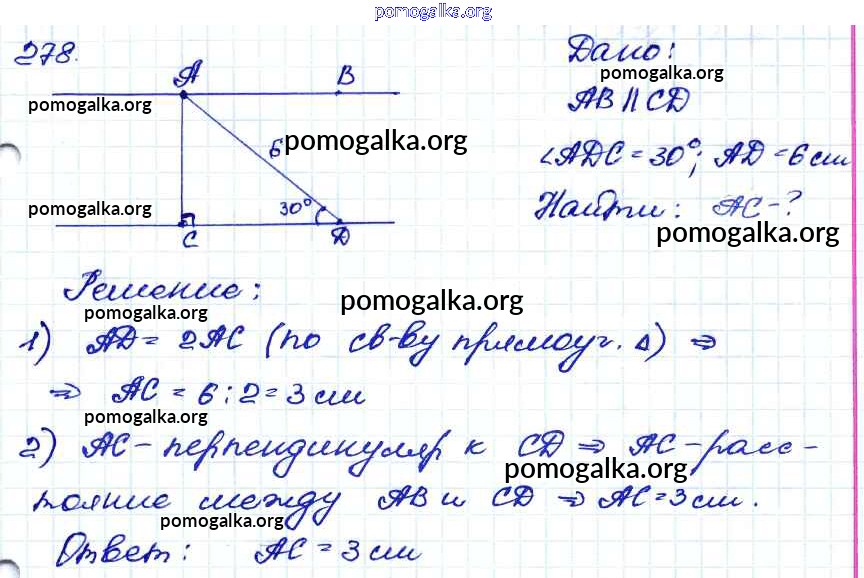 pomogalka.org
278.
A B
Дано:
pomogalka.org
pomogalka.org
AB || CD
6
pomogalka.org
∠ADC = 30°; AD = 6 см
pomogalka.org
30°
Найти: AC - ?
C D
pomogalka.org
Решение:
pomogalka.org
pomogalka.org
1) AD = 2AC (по св-ву прямоуг. Δ) ⇒
⇒ AC = 6 : 2 = 3 см
pomogalka.org
2) AC - перпендикуляр к CD ⇒ AC - расс-
pomogalka.org
тояние между AB и CD ⇒ AC = 3 см.
pomogalka.org
Ответ: AC = 3 см